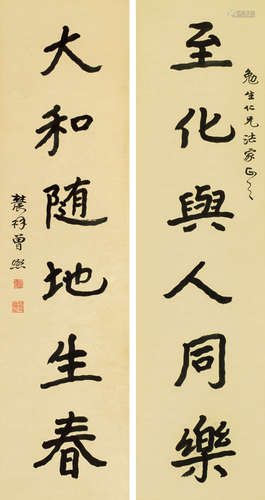 至化與人同樂
勉生仁兄法家正之
大和随地生春
農髯曾熙